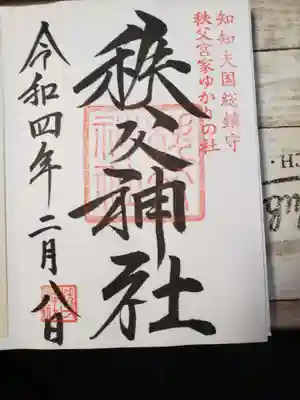 知知夫国総鎮守
秩父宮家ゆかりの社
秩父神社
令和四年二月八日